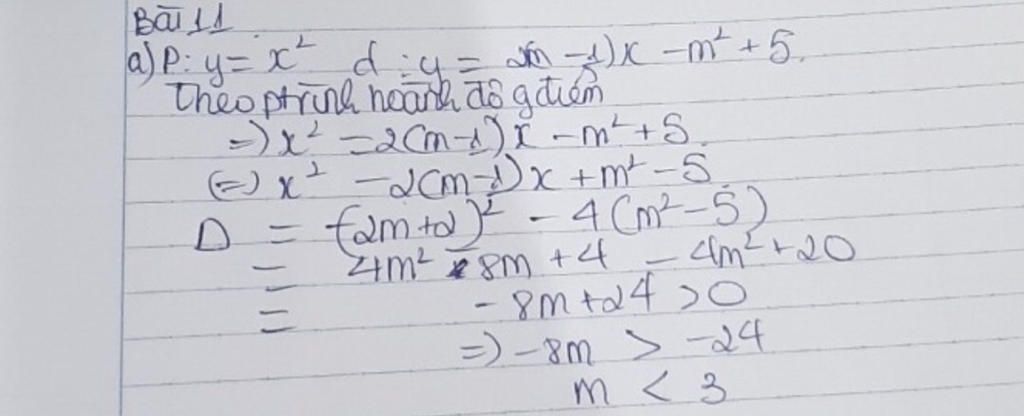 Bài 11
a) P: y = x² d : y = 2(m - 1)x - m² + 5.
Theo ptrình hoành độ gđiểm
=> x² = 2(m-1)x - m² + 5.
(=) x² - 2(m-1)x + m² - 5
Δ = (-2m+2)² - 4(m² - 5)
= 4m² - 8m + 4 - 4m² + 20
= - 8m + 24 > 0
=> -8m > -24
m < 3